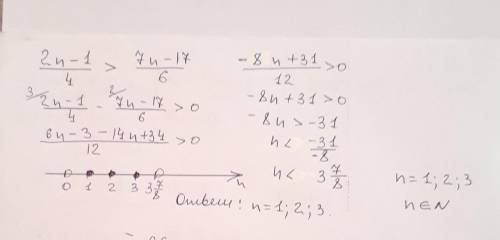 (2n-1)/4 > (7n-17)/6
3/ (2n-1)/4 - 2/ (7n-17)/6 > 0
(6n-3-14n+34)/12 > 0
0 1 2 3 3 7/8 n
(-8n+31)/12 > 0
-8n+31 > 0
-8n > -31
n < -31/-8
n < 3 7/8
n = 1; 2; 3
n ∈ N
Ответ: n = 1; 2; 3.